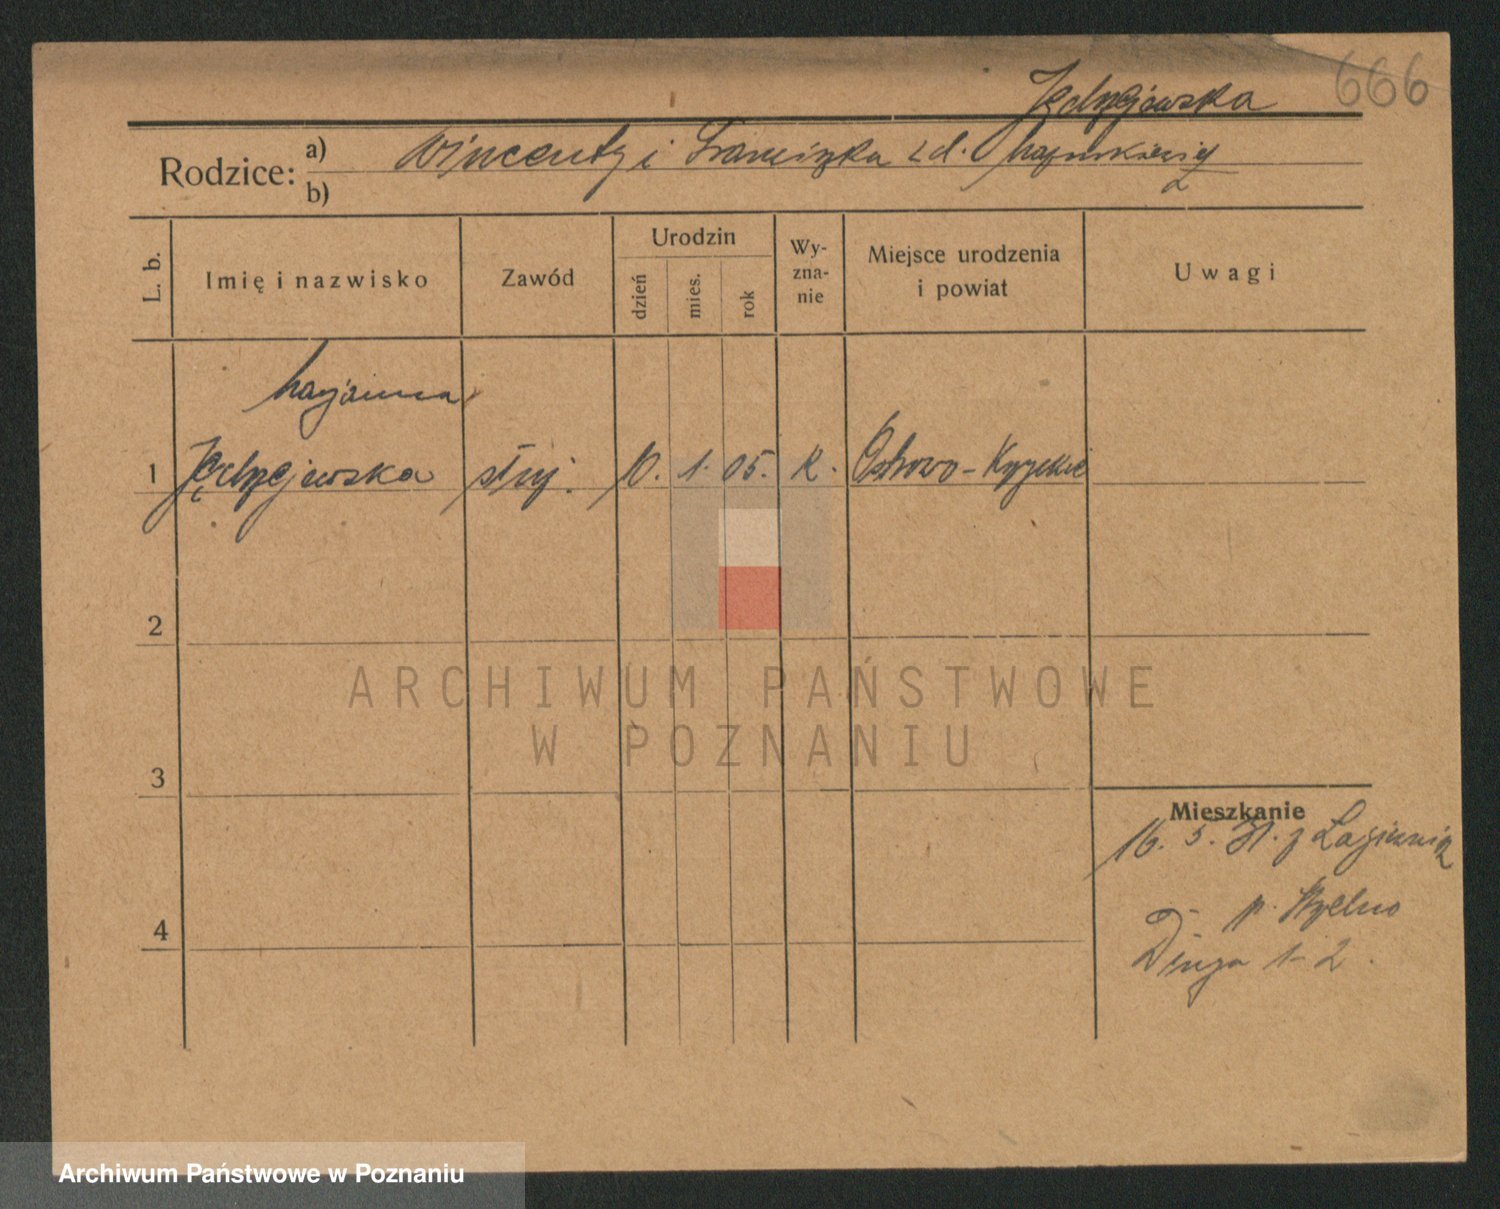 666
Jędrzejewska
Rodzice: a) Wincenty i Franciszka z d.
b)
L. b.
Imię i nazwisko
Zawód
Urodzin
dzień
mies.
rok
Wy-
zna-
nie
Miejsce urodzenia
i powiat
Uwagi
Maryanna
1 Jędrzejewska służ. 10. 1. 05. K. Ostrowo-
2
3
4
ARCHIWUM PAŃSTWOWE
W POZNANIU
Mieszkanie
16. 5. 31. z
p.
1-2.
Archiwum Państwowe w Poznaniu